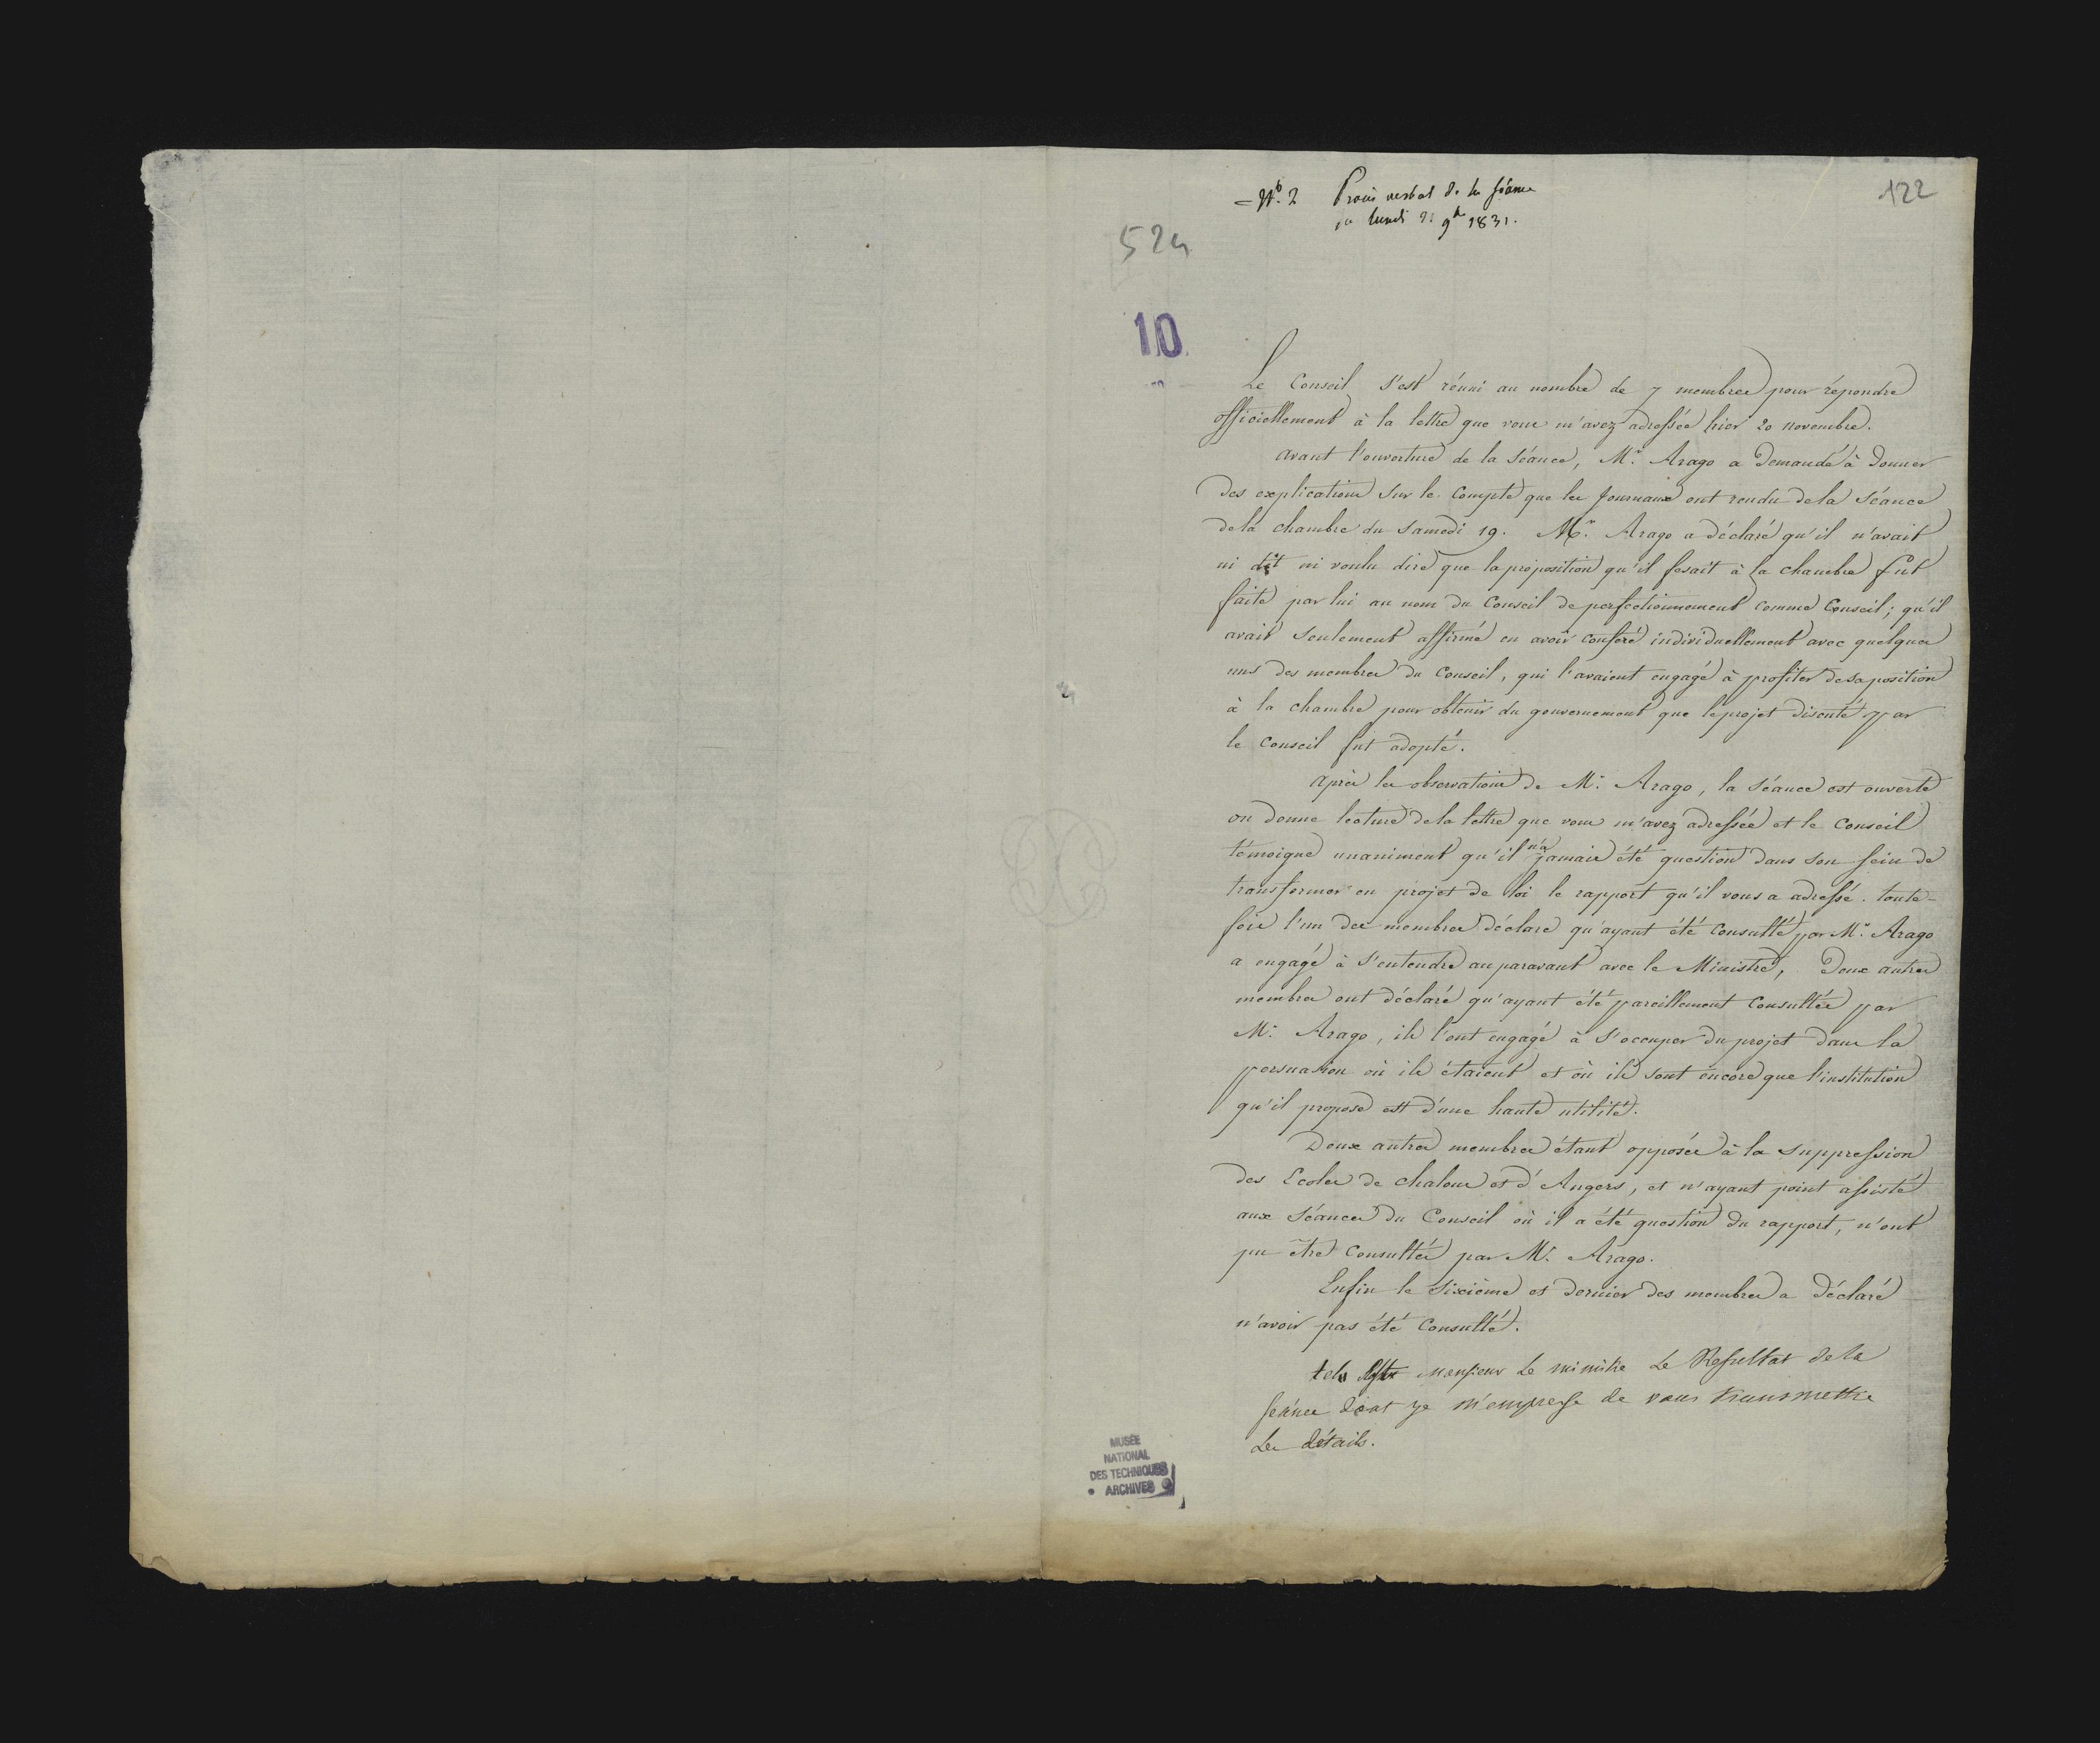 = N.o 2 Procès verbal de la séance
du lundi 21 9bre 1831.
122
524
10
Le Conseil s'est réuni au nombre de 7 membres pour répondre
officiellement à la lettre que vous m'avez adressée hier 20 novembre.
avant l'ouverture de la Séance, Mr. Arago a Demandé à Donner
Des explications sur le Compte que les Journaux ont rendu de la Séance
de la chambre du Samedi 19. Mr. Arago a déclaré qu'il n'avait
ni dit ni voulu dire que la proposition qu'il fesait à la chambre fut
faite par lui au nom du Conseil de perfectionnement comme Conseil; qu'il
avait Seulement affirmé en avoir conféré individuellement avec quelques
uns des membres du Conseil, qui l'avaient engagé à profiter de sa position
à la chambre pour obtenir du gouvernement que le projet discuté par
le Conseil fut adopté.
après les observations de Mr. Arago, la Séance est ouverte
on donne lecture de la lettre que vous m'avez adressée et le Conseil
témoigne unaniment qu'il n'a jamais été question dans son sein de
transformer en projet de loi le rapport qu'il vous a adressé. toute-
fois l'un des membres déclare qu'ayant été Consulté par Mr. Arago
a engagé à S'entendre auparavant avec le Ministre, Deux autres
membres ont déclaré qu'ayant été pareillement Consultés par
Mr. Arago, ils l'ont engagé à S'occuper du projet dans la
persuasion où ils étaient et où ils sont encore que l'institution
qu'il propose est d'une haute utilité.
Deux autres membres étant opposés à la Suppression
des Ecoles de Chalons et d'Angers, et n'ayant point assisté
aux Séances du Conseil où il a été question du rapport, n'ont
pu être Consultés par Mr. Arago.
Enfin le Sixième et dernier des membres a Déclaré
n'avoir pas été Consulté.
tel Monsieur Le ministre Le Resultat de la
séance dont je m'empresse de vous transmettre
Les détails.
MUSÉE
NATIONAL
DES TECHNIQUES
ARCHIVES